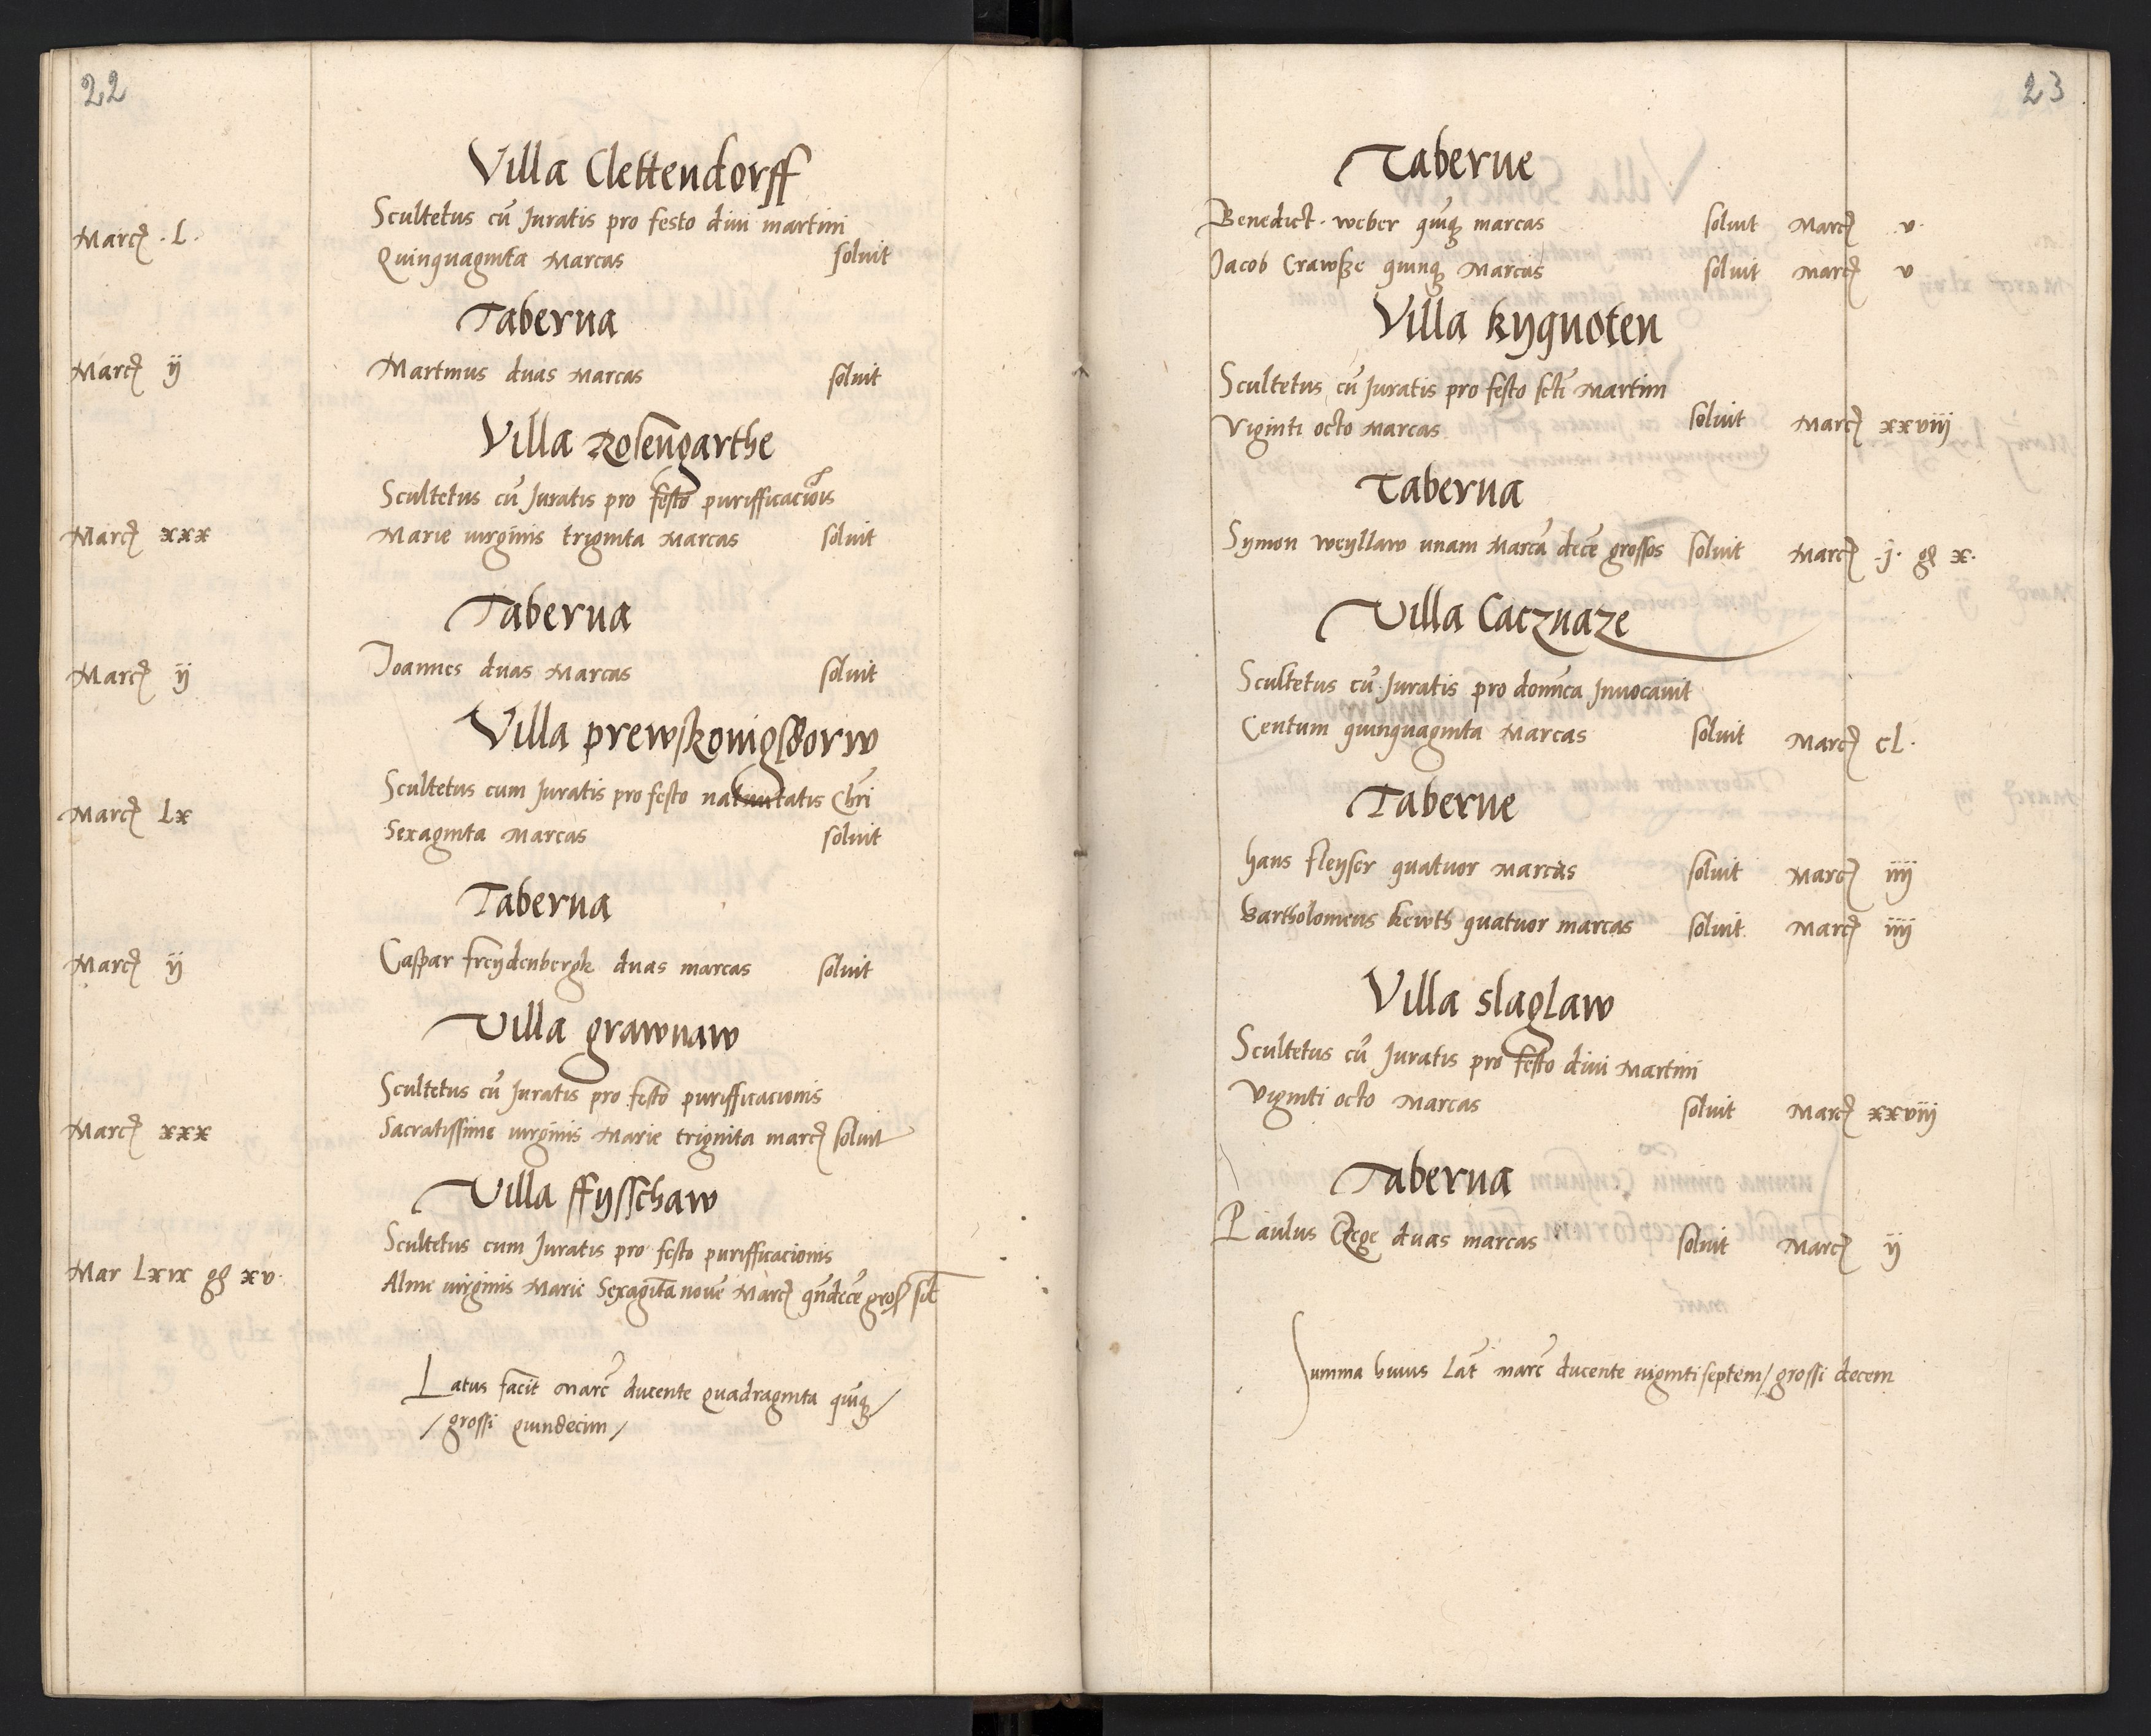 22
Villa Clettendorff
Scultetus cū Juratis pro festo diui martini
Marcȝ · L · Quinquaginta Marcas soluit
Taberna
Marcȝ ij Martinus duas Marcas soluit
Villa Rosengarthe
Scultetus cū Juratis pro festo purifficaciōis
Marcȝ xxx Marie uirginis triginta Marcas soluit
Taberna
Marcȝ ij Joannes duas Marcas soluit
Villa prewskonigsdorw
Scultetus cum Juratis pro festo natiuitatis Chrī
Marcȝ Lx Sexaginta Marcas soluit
Taberna
Marcȝ ij Caspar freydenbergk duas marcas soluit
Villa grawnaw
Scultetus cū Juratis pro festo purifficacionis
Marcȝ xxx Sacratissime uirginis Marie triginta marcȝ soluit
Villa ffysschaw
Scultetus cum Juratis pro festo purifficacionis
Mar Lxix gȝ xv· Alme uirginis Marie Sexagīta nouē Marcȝ qūdecē grosȝ solt
Latus facit marc̄ ducente quadraginta quīqȝ /
/ grossi quindecim /
23
Taberne
Benedict · weber quīqȝ marcas soluit Marcȝ ·v·
Jacob Crawsze quinqȝ Marcas soluit marcȝ v
Villa kygnoten
Scultetus cū Juratis pro festo sctī Martini
Viginti octo Marcas soluit Marcȝ xxviij
Taberna
Symon weyllaw unam Marcā decē grossos soluit Marcȝ ·j· gȝ x·
Villa Cacznaze
Scultetus cū Juratis pro domīca Inuocauit
Centum quinquaginta Marcas soluit Marcȝ cl·
Taberne
hans fleyser quatuor Marcas soluit Marcȝ iiij
Bartholomeus kewth quatuor marcas soluit Marcȝ iiij
Villa slaglaw
Scultetus cū Juratis pro festo diui Martini
Viginti octo Marcas soluit Marcȝ xxviij
Taberna
Paulus Rege duas marcas soluit Marcȝ ij
Summa huius Lat̄ marc̄ ducente uiginti septem / grossi decem